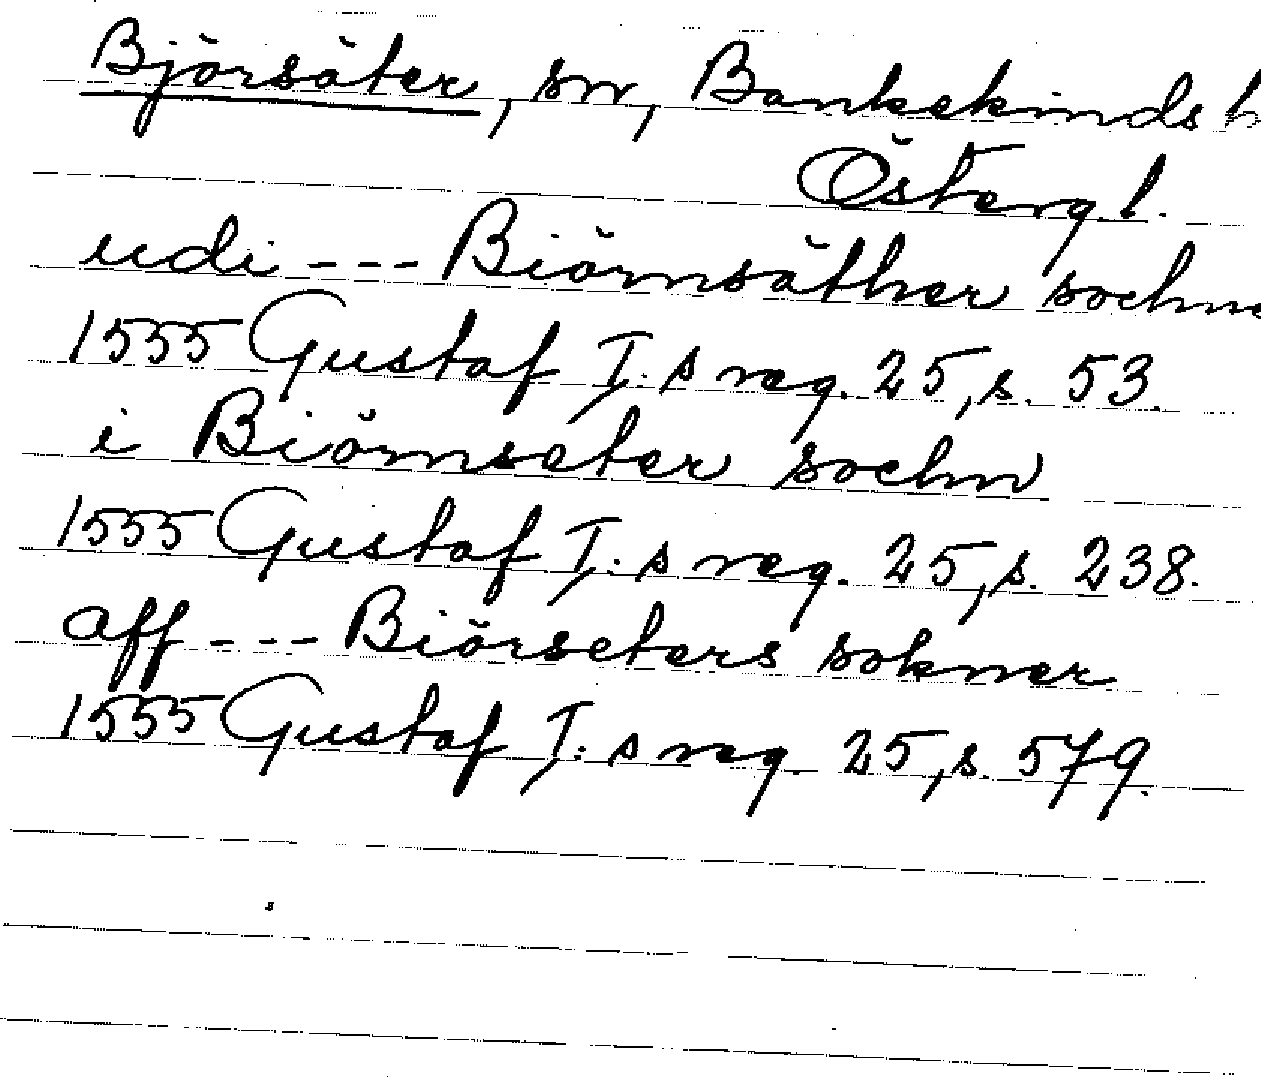 Björsäter, sn, Bankekinds h
Östergl.
udi --- Biörnsäther sochne
1555 Gustaf I:s reg. 25, s. 53.
i Biörnseter sochn
1555 Gustaf I:s reg. 25, s. 238.
aff --- Biörseters sokner
1555 Gustaf I:s reg. 25, s. 579.